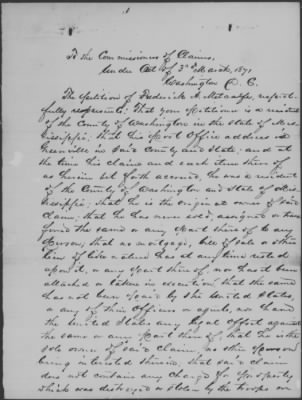 To the Commissioners of Claims,
Under Act of 3rd March, 1871.
Washington D. C.
The Petition of Frederick A. Metcalfe, respect-
fully represents: That your Petitioner is a resident
of the County of Washington in the State of Mis-
sissippi: That his Post Office address is
Greenville in said County and State: and at
the time his claims and each item thereof
as herein set forth accrued, he was a resident
of the County of Washington and State of Mis-
sissippi; that he is the original owner of said
Claim; that he has never sold, assigned or trans-
ferred the same or any part thereof to any
Person, that no mortgage, bill of sale or other
lien of like nature has at any time rested
upon it, or any part thereof, nor has it been
attached or taken in execution; that the same
has not been paid by the United States,
or any of their Officers or agents, nor have
the United States any legal offset against
the same or any part thereof, that he is the
sole owner of said claim, no other Person
being interested therein, that said claim
does not contain any charge for property
which was destroyed or stolen by the troops or